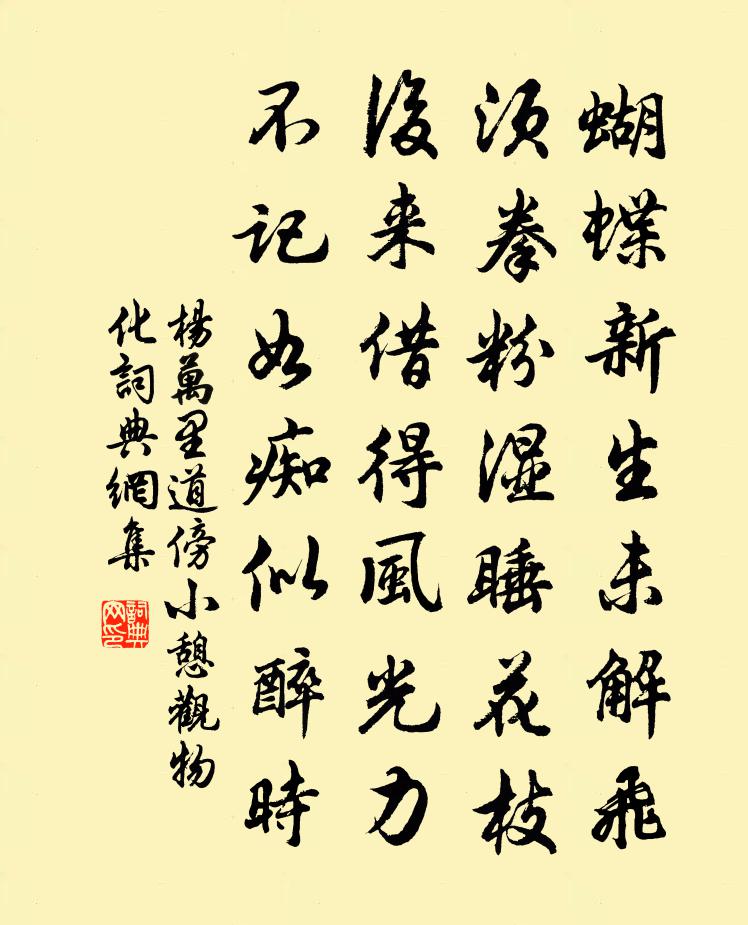 蝴蝶新生未解飛
須拳粉湿睡花枝
後来借得風光力
不記如痴似醉時
楊萬里道傍小憩觀物
化詞典網集
詞典网印